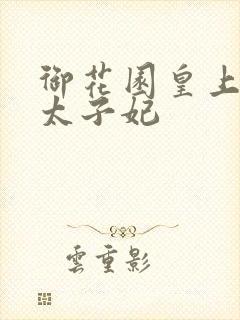 御花園皇上
太子妃
雲重影